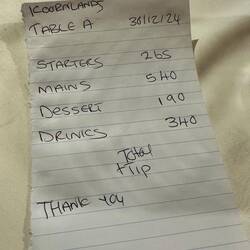 KOORNLANDS
TABLE A 30/12/24
STARTERS 265
MAINS 540
DESSERT 190
DRINKS 340
Total
+ Tip
THANK YOU